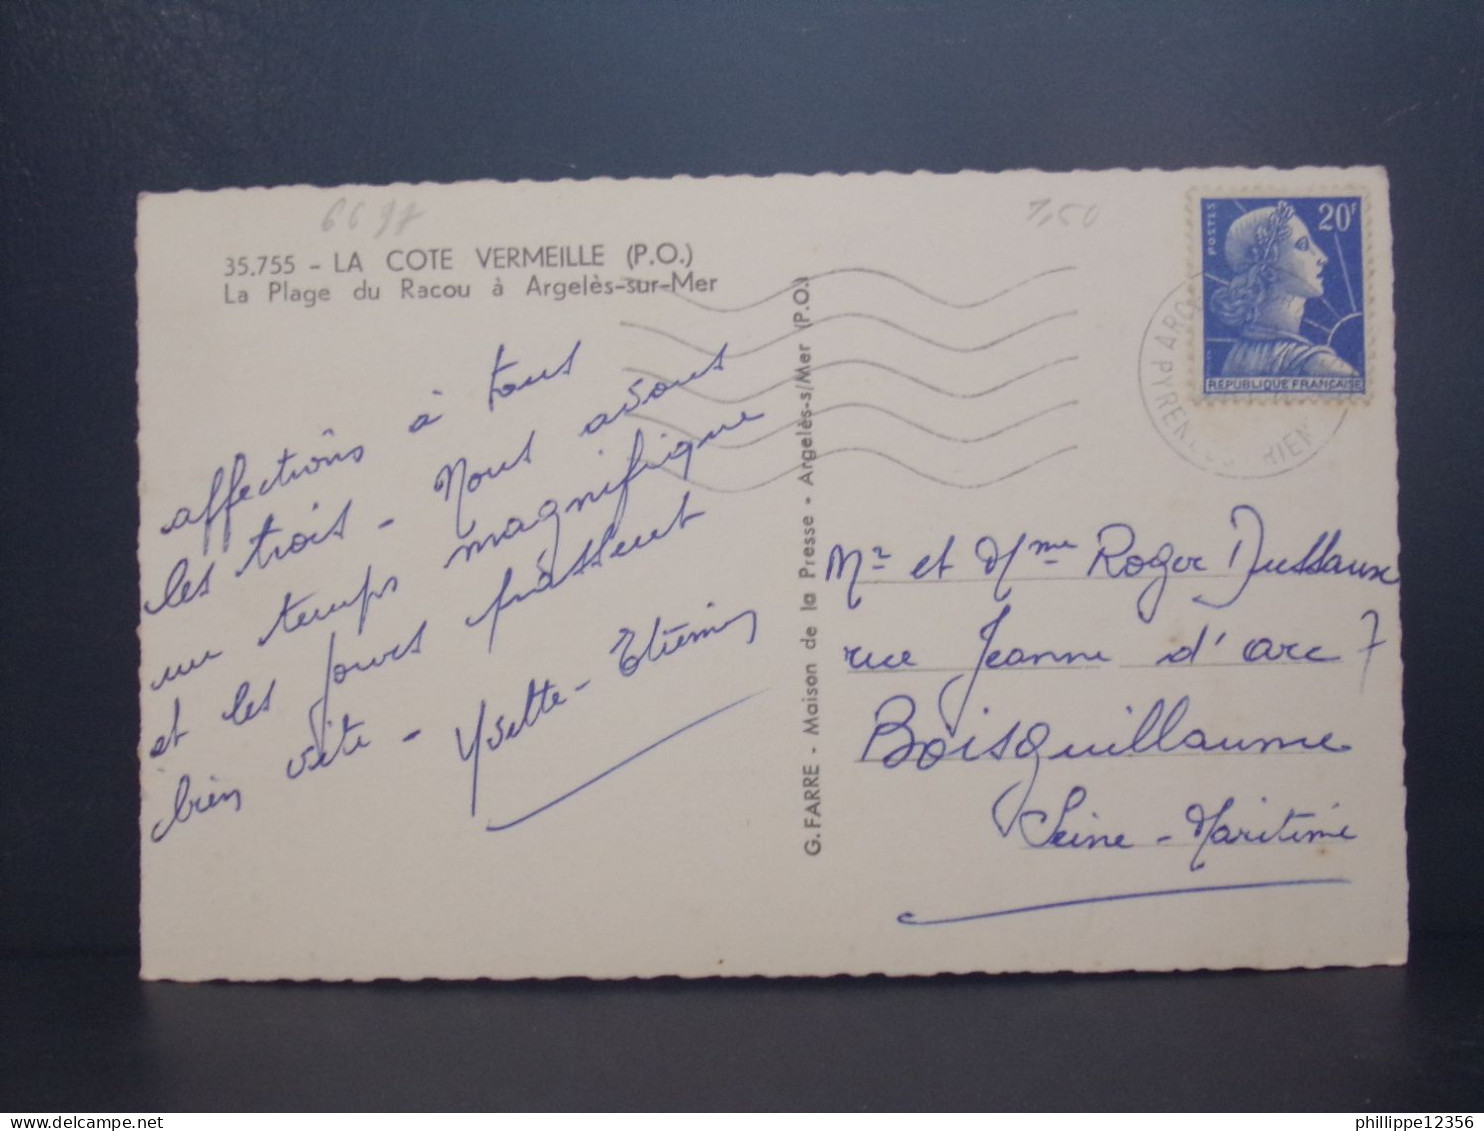 6698
7,50
35.755 - LA COTE VERMEILLE (P.O.)
La Plage du Racou à Argelès-sur-Mer
affections à tous
les trois - Nous avons
un temps magnifique
et les jours passent
bien vite - Yvette -
G. FARRE - Maison de la Presse - Argelès-s/Mer (P.O.)
POSTES
20F
REPUBLIQUE FRANÇAISE
Mr et Mme Roger Dussaux
rue Jeanne d'arc 7
Boisguillaume
Seine-Maritime
phillippe12356